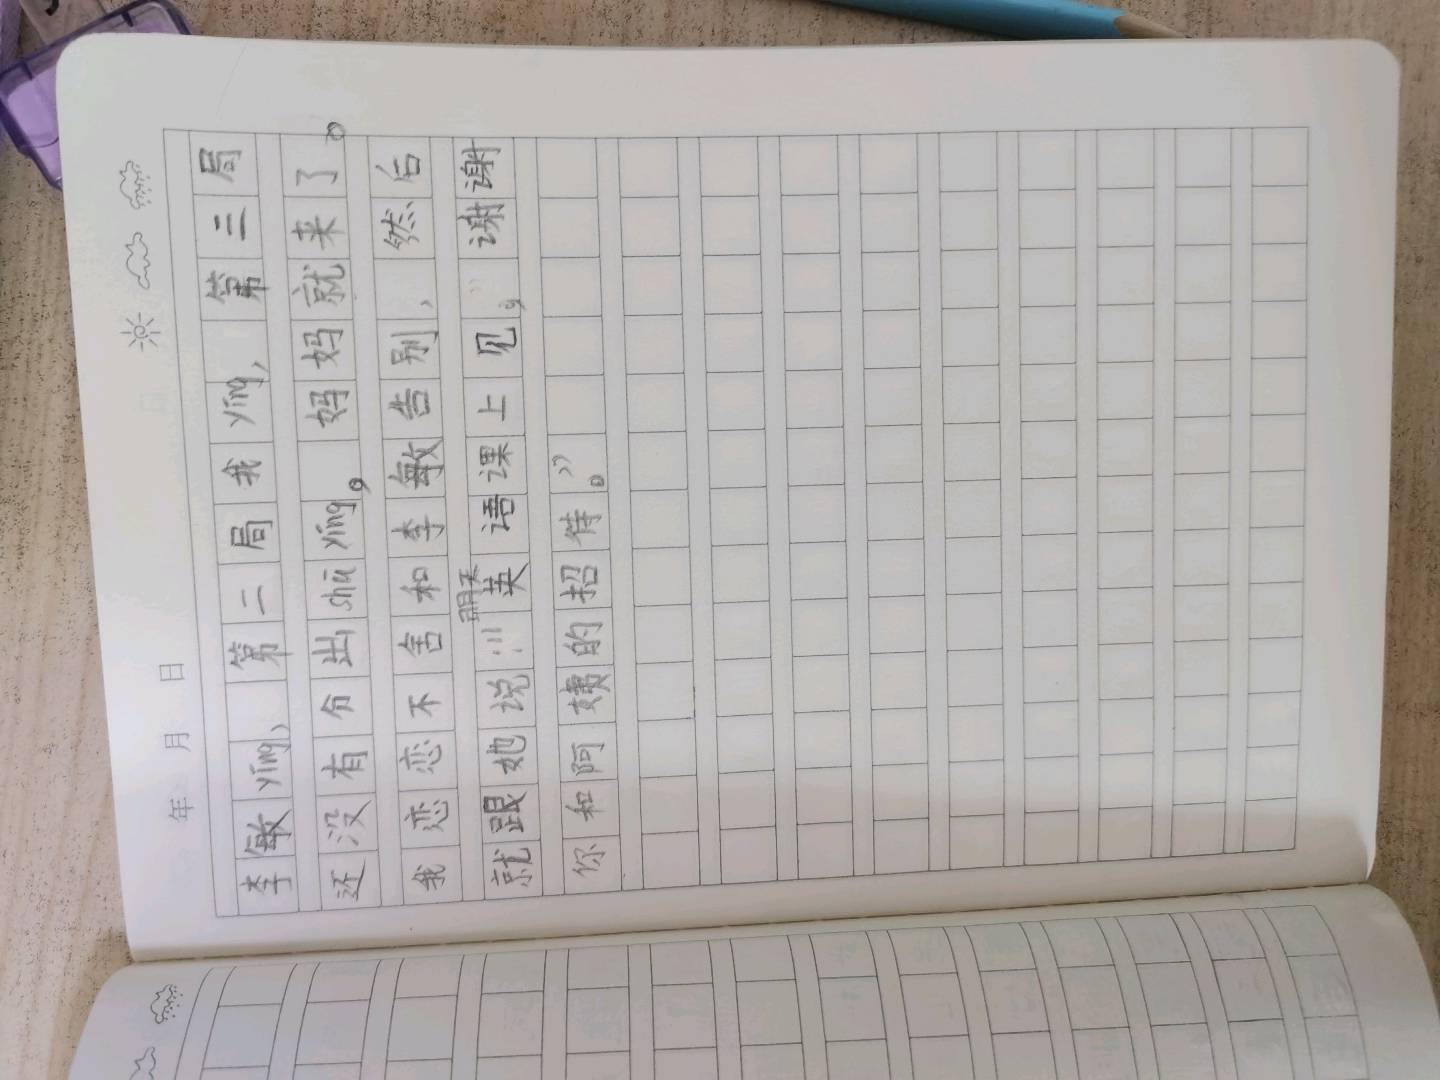 年 月 日
李敏yíng，第二局我yíng，第三局
还没有分出shū yíng。妈妈就来了。
我恋恋不舍和李敏告别，然后
就跟她说：“明天英语课上见。”谢谢
你和阿姨的招待。”